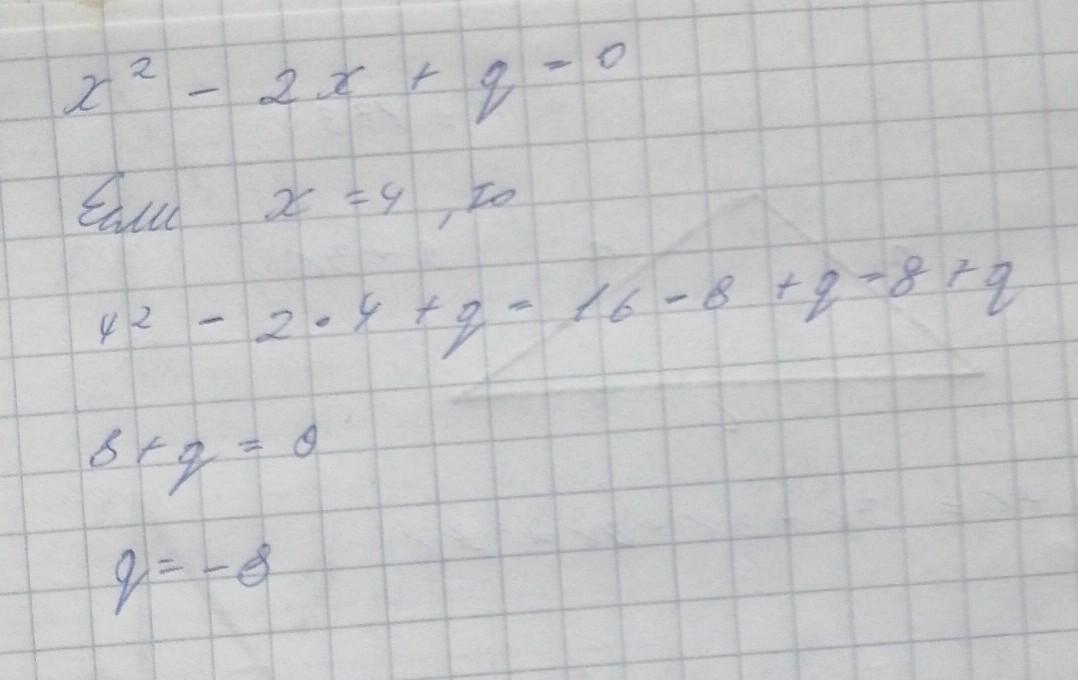 x² - 2x + q = 0
Если x = 4, то
4² - 2 · 4 + q = 16 - 8 + q = 8 + q
8 + q = 0
q = -8